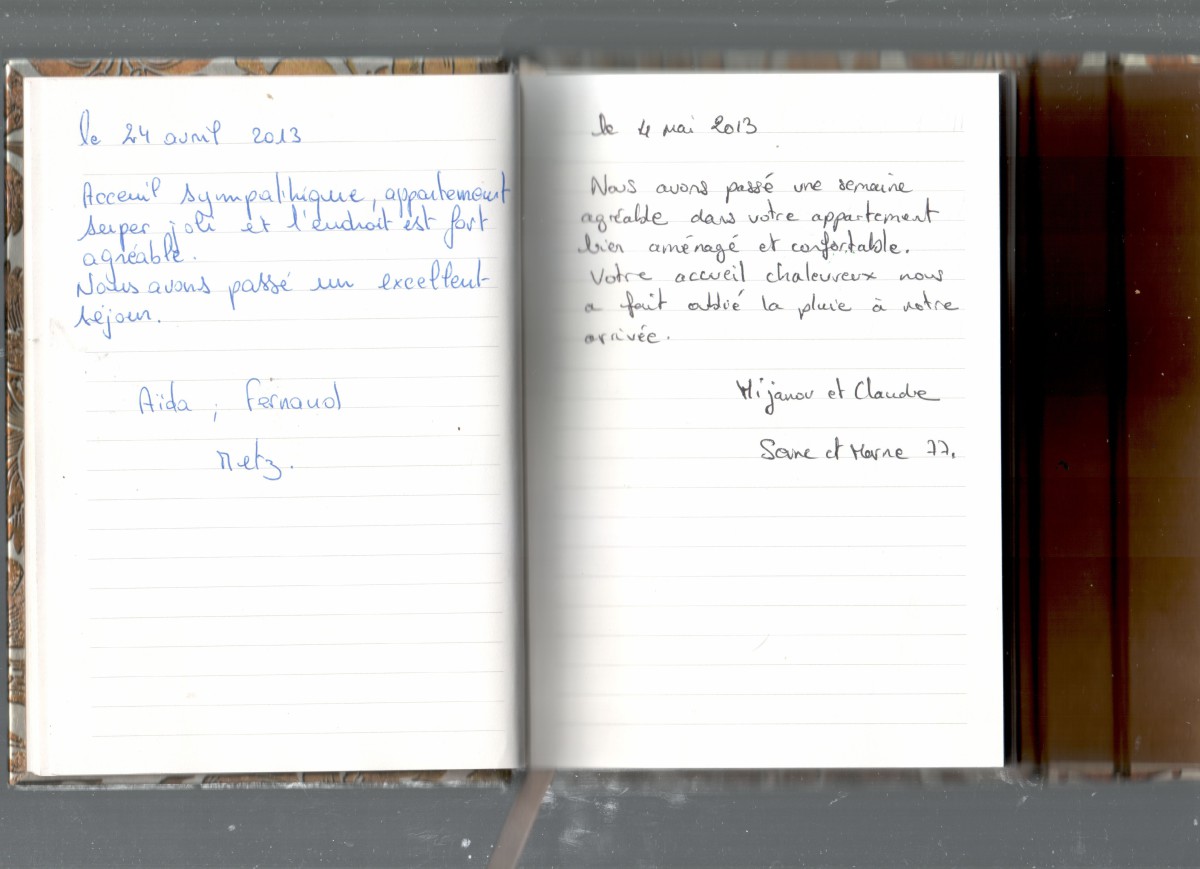 le 24 avril 2013
Acceuil sympathique, appartement
super joli et l'endroit est fort
agréable.
Nous avons passé un excellent
séjour.
Aïda, Fernand
Metz.
le 4 mai 2013
Nous avons passé une semaine
agréable dans votre appartement
bien aménagé et confortable.
Votre accueil chaleureux nous
a fait oublié la pluie à notre
arrivée.
et Claude
Seine et Marne 77.